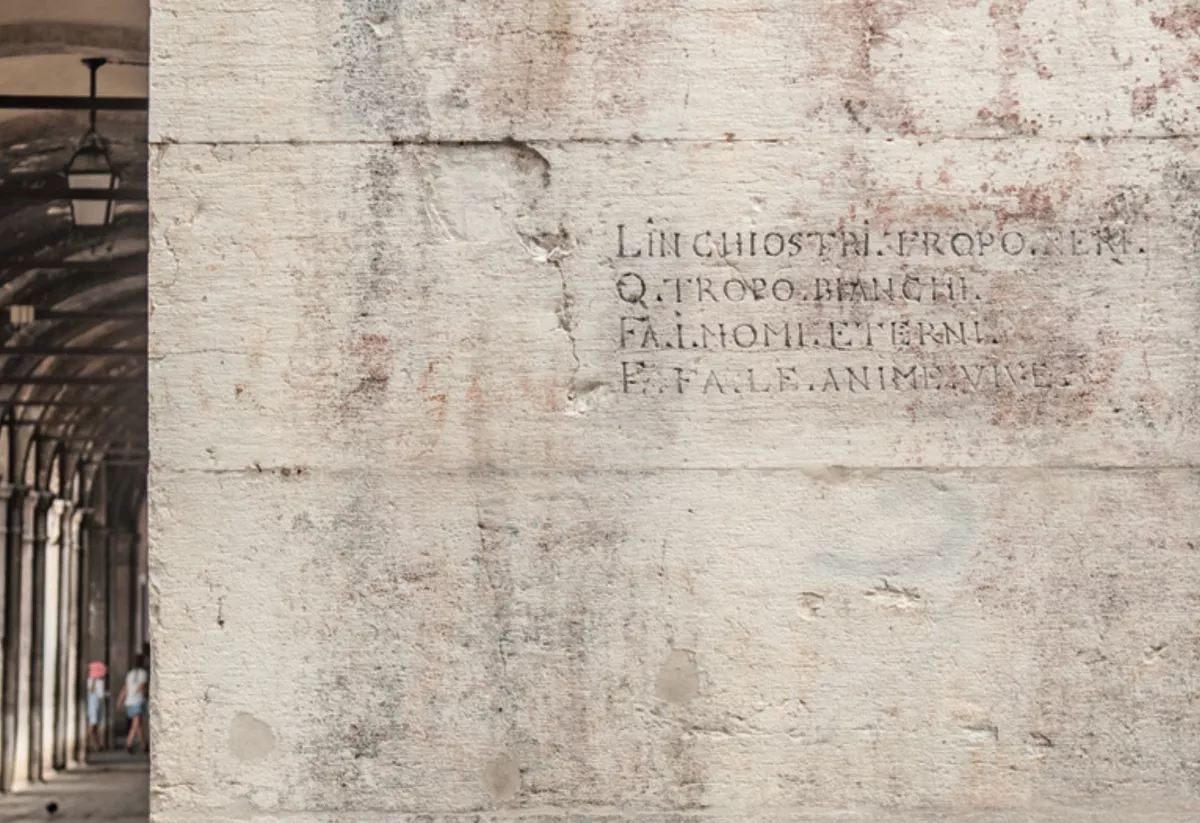 LIN CHIOSTRI. TROPO. NERI.
Q. TROPO. BIANCHI.
FA. I. NOMI. ETERNI.
E. FA. LE. ANIME. VIVE.